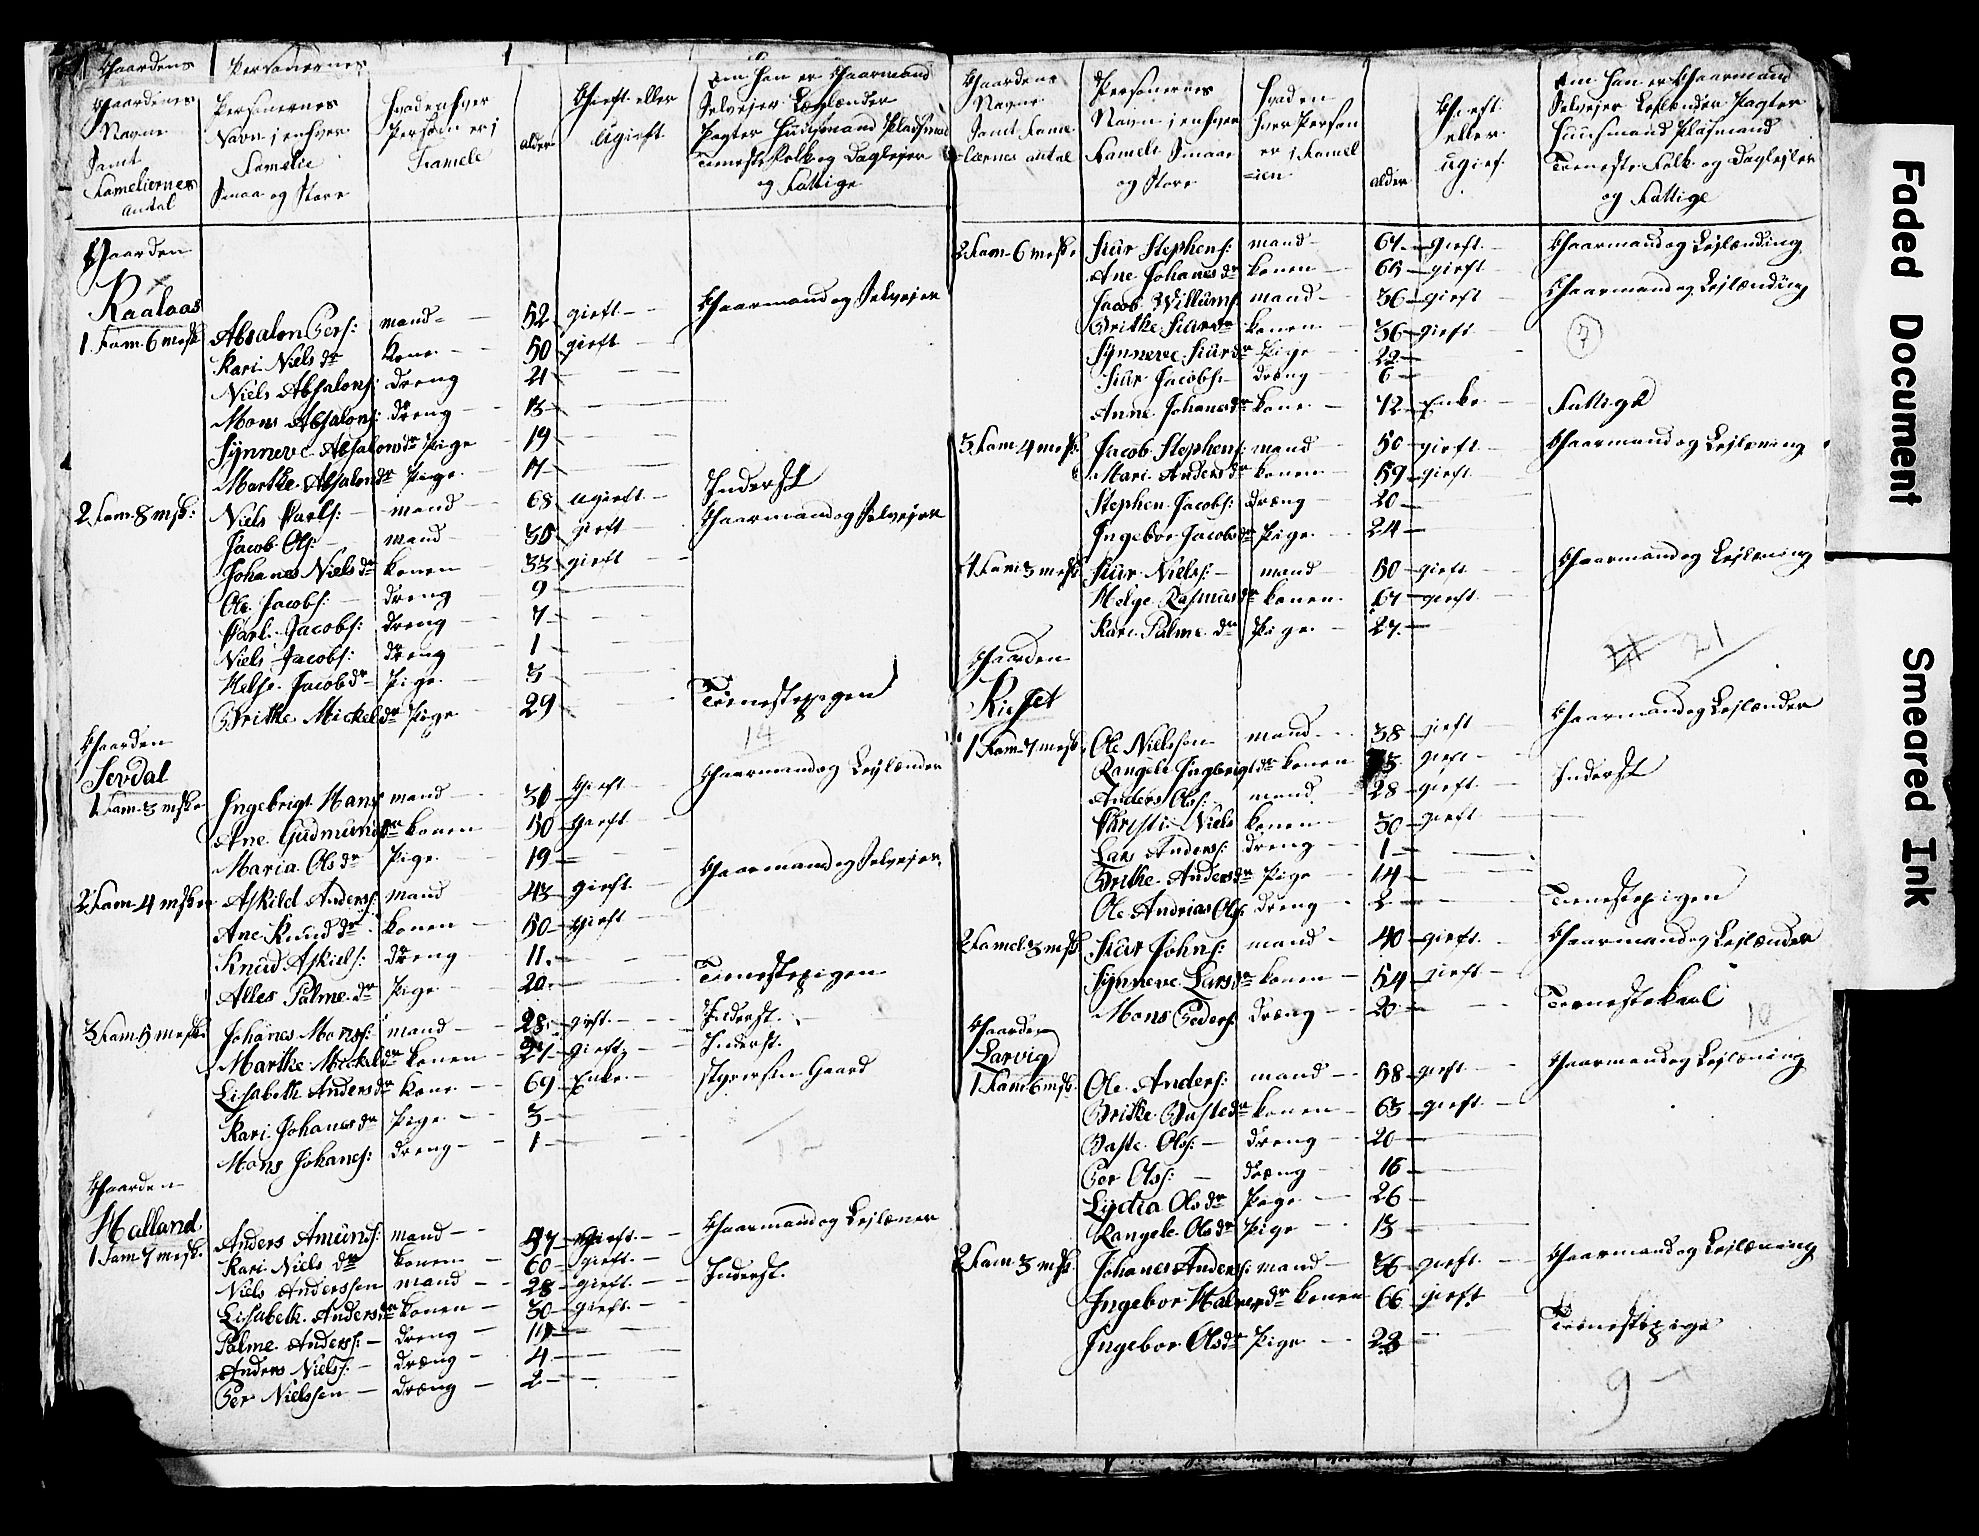 Gaardens Personernes
Gaardenes Navne Samt Fameliernes Andal | Personernes Navn i enhver Famelie Smaa og Store | hvad enhver Persohn er i Famele | alder | Gieft eller Ugieft | Om han er Gaarmand Selvejer Leylænder Pagter Huusmand Pladsmand Tieneste Folk og Daglejer og Fattige
Gaarden
Raalaas
1 Fam. 6 mesk | Absalon Pers: | mand | 52 | gieft | Gaarmand og Selvejer
Kari Niels dr | Kone | 50 | gieft
Niels Absalons: | dreng | 21
Mons Absalons: | dreng | 13
Synneve Absalons dr | Pige | 19
Marthe Absalons dr | Pige | 17
2 Fam. 8 msk: | Niels Carls: | mand | 68 | ugieft | Inderst
Jacob Ols: | mand | 38 | gieft | Gaarmand og Selvejer
Johanes Niels dr | konen | 33 | gieft
Ole Jacobs: | dreng | 9
Carl Jacobs: | dreng | 7
Niels Jacobs: | dreng | 1
Helse Jacobdr | Pige | 3
Brithe Mickeldr | Pige | 29 | Tienestepigen
14
Gaarden
Sevdal
1 Fam. 3 mske | Ingebrigt Hans | mand | 31 | Gieft | Gaarmand og Leylænder
Ane Gudmunds dr | konen | 50 | Gieft
Maria Ols dr | Pige | 19
2 Fam. 4 msker | Askild Anders: | mand | 43 | gieft | Gaarmand og Selvejer
Ane Knud dr | konen | 50 | Gieft
Knud Askiels: | dreng | 11
Alles Palme dr | Pige | 20 | Tienestepigen
3 Fam. 5 meske | Johanes Mons: | mand | 28 | gieft | Inderst
Marthe Mickel dr | konen | 27 | gieft | Inderst
Lisabeth Anders dr | kone | 69 | Enke | styrer sin Gaard
Kari Johanes dr | Pige | 3
Mons Johanes: | dreng | 1
12
Gaarden
Halland
1 Fam. 7 mesk. | Anders Amunds: | mand | 57 | Gieft | Gaarmand og Lejlæner
Kari Niels dr | konen | 60 | gieft
Niels Anderssen | mand | 28 | gieft | Inderst
Lisabeth Anders dr | konen | 30 | gieft
Palme Anders: | dreng | 11
Anders Niels: | dreng | 4
Per Nielssen | dræng | 2
Gaardens Navne Samt Famelærnes antal | Personernes Navn i enhver Fameli Smaae og Store | hvad en hver Person er i Famelien | alder | Gieft eller ugief: | Om han er Gaarmand Selvejer Lejlænder Pagter Huusmand Plasmand Tieneste Folk og Daglejer og Fattige
2 Fam. 6 mesk. | Siur Stephens: | mand | 67 | gieft | Gaarmand og Lejlænding
Ane Johanes dr | konen | 65 | gieft
Jacob Willums: | mand | 36 | gieft | Gaarmand og Lejlænding
Brithe Siurs dr | konen | 36 | gieft
7
Synneve Siurs dr | Pige | 22
Siur Jacobs: | dræng | 6
Anne Johanes dr | kone | 72 | Enke | Fattige
3 Fam. 4 mesk. | Jacob Stephens: | mand | 50 | gieft | Gaarmand og Lejlæning
Mari Anders dr | konen | 59 | gieft
Stephen Jacobs: | dræng | 20
Ingebor Jacobs dr | Pige | 24
4 Fam. 3 mesk | Siur Niels: | mand | 50 | gieft | Gaarmand og Lejlæning
Helge Rasmus dr | konen | 67 | gieft
Kari Palme dr | Pige | 27
21
Gaarden
Risset
1 Fam. 7 mesk. | Ole Nielssen | mand | 38 | gieft | Gaarmand og Lejlænder
Rangele Ingbrigt dr | konen | gieft
Anders Ols: | mand | 28 | gieft | Inderst
Christi Niels | konen | 30 | gieft
Lars Anders: | dreng | 1
Brithe Anders dr | Pige | 14
Ole Andrias Ols: | dreng | 2 | Tienestepigen
2 Famel. 3 mesk | Siur Johns: | mand | 40 | gieft | Gaarmand og Lejlænder
Synneve Lars dr | konen | 54 | gieft
Mons Peders: | dræng | 20 | Tieneste Karl
10
Gaarden
Larvig
1 Fam. 6 msk. | Ole Anders: | mand | 58 | gieft | Gaarmand og Lejlæning
Brithe Baste dr | konen | 63 | gieft
Baste Ols: | dreng | 20
Per Ols: | dræng | 16
Lydia Ols dr | Pige | 26
Rangele Ols dr | Pige | 13
2 Fam. 3 msk. | Johanes Anders: | mand | 36 | gieft | Gaarmand og Lejlæning
Ingebor Halvers dr | konen | 66 | gieft
Ingebor Ols dr | Pige | 22 | Tienestepige
9
Faded Document
Smeared Ink